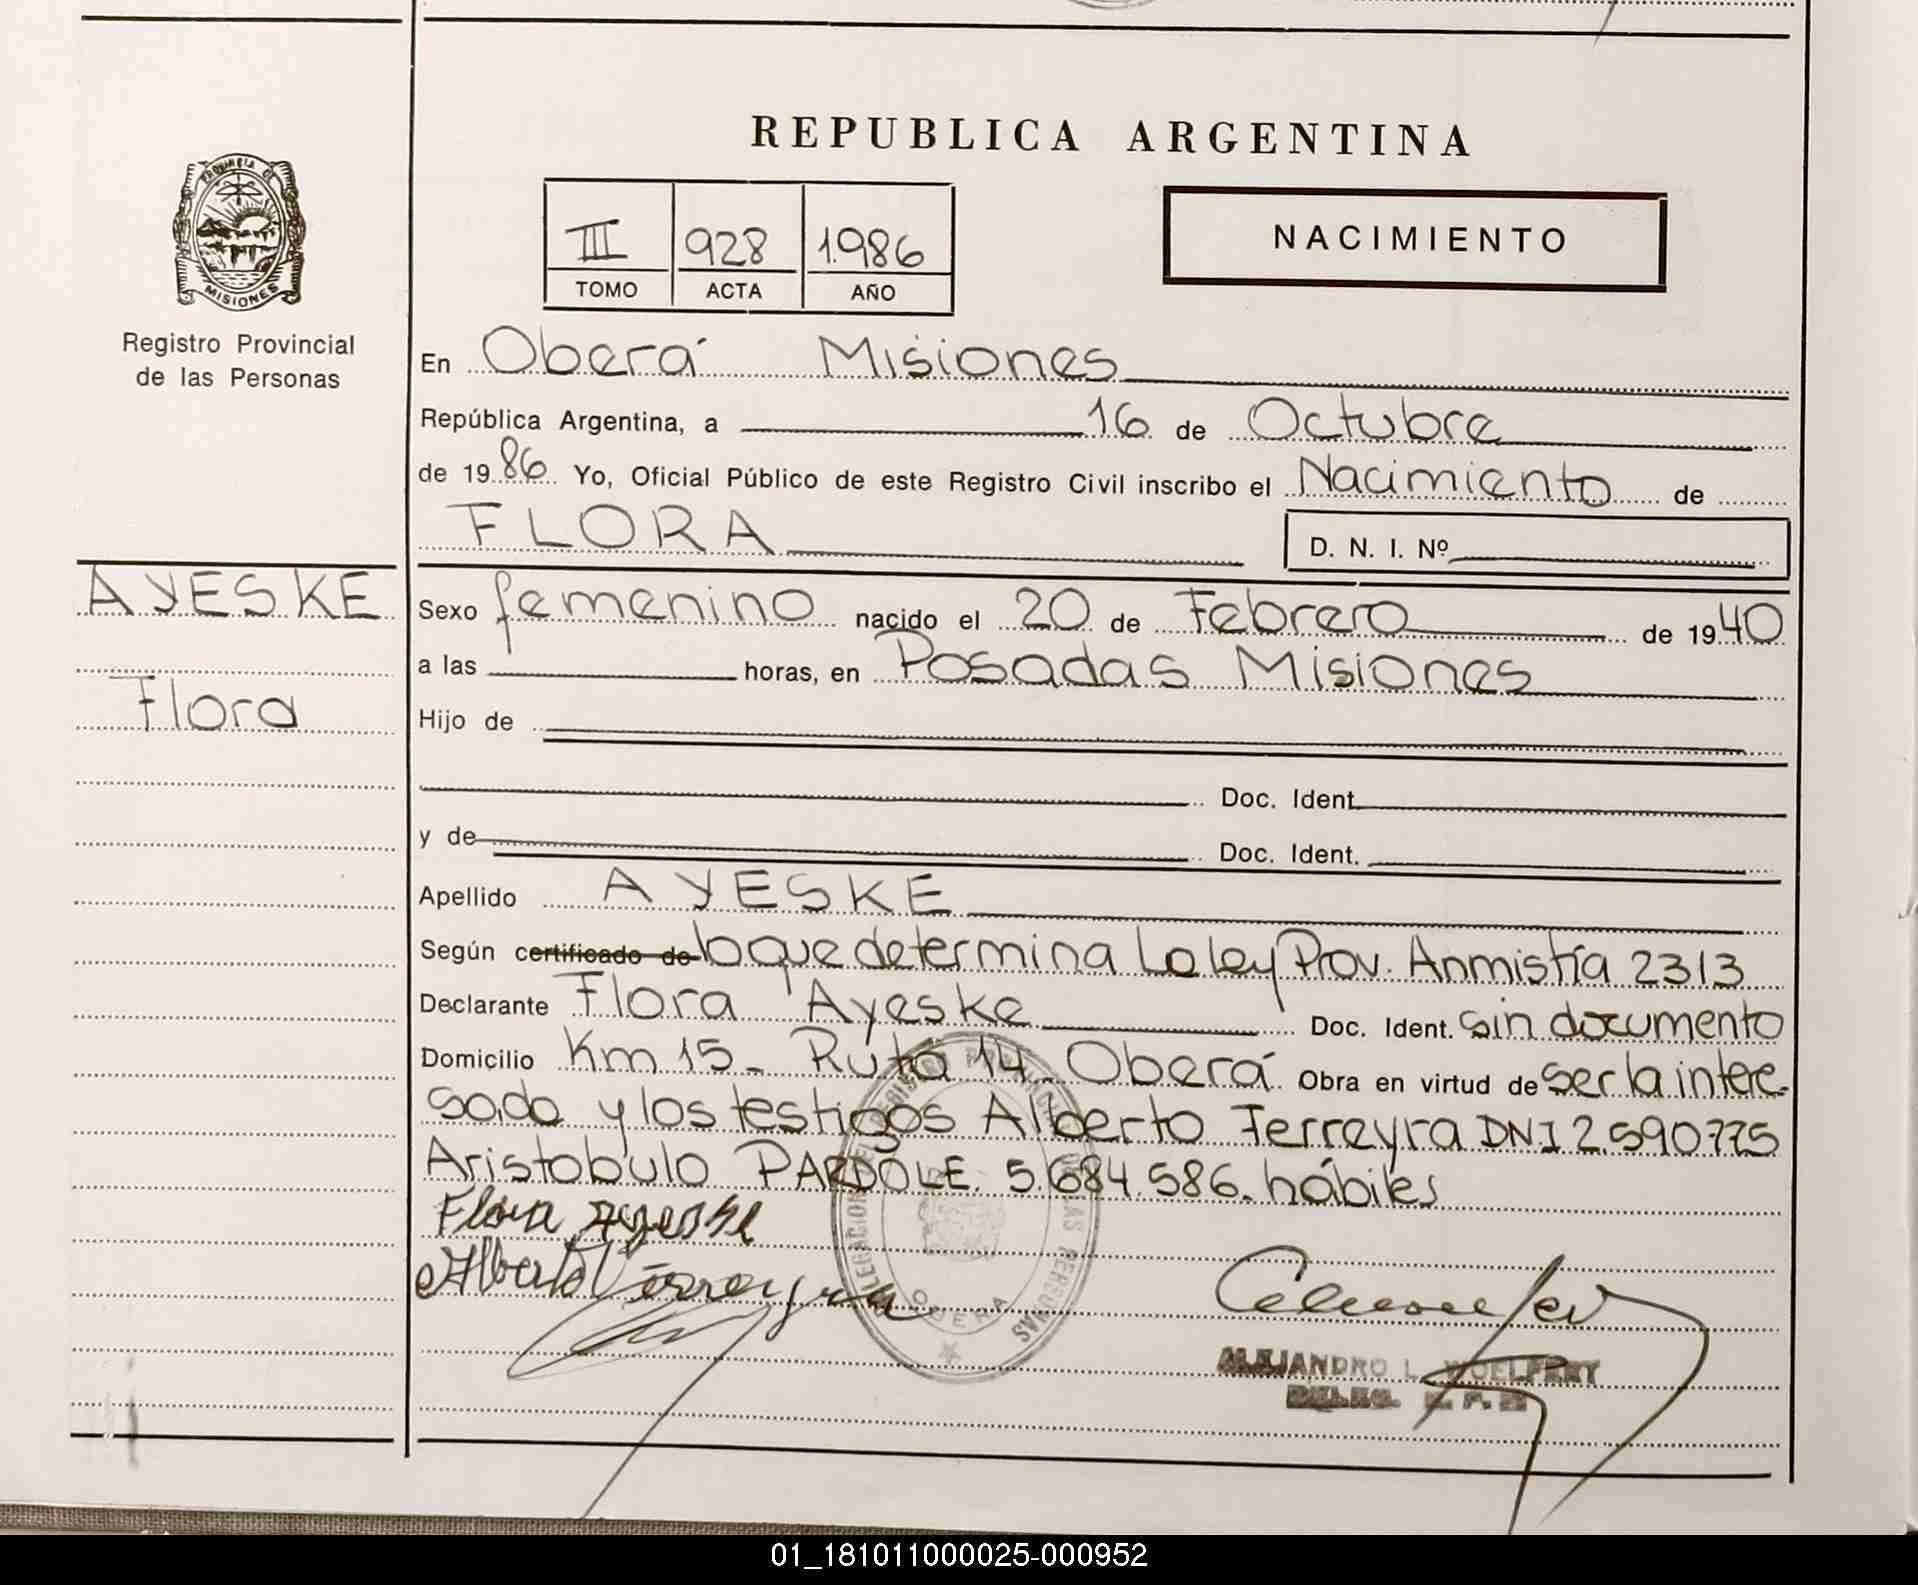 REPUBLICA ARGENTINA
PROVINCIA DE
MISIONES
Registro Provincial
de las Personas
III 928 1.986
TOMO ACTA AÑO
NACIMIENTO
En Oberá Misiones
República Argentina, a 16 de Octubre
de 19 86 Yo, Oficial Público de este Registro Civil inscribo el Nacimiento de
FLORA D. N. I. Nº
AYESKE
Flora
Sexo femenino nacido el 20 de Febrero de 19 40
a las horas, en Posadas Misiones
Hijo de
Doc. Ident.
y de Doc. Ident.
Apellido AYESKE
Según certificado de lo que determina La ley Prov. Anmistía 2313
Declarante Flora Ayeske Doc. Ident. sin documento
Domicilio Km 15 - Ruta 14. Oberá Obra en virtud de ser la intere-
sada y los testigos Alberto Ferreyra DNI 2.590775
Aristobulo PARDO LE. 5.684.586. hábiles
Flora Ayeske
Alberto Ferreyra
OBERA
ALEJANDRO L. WOELFERT
01_181011000025-000952